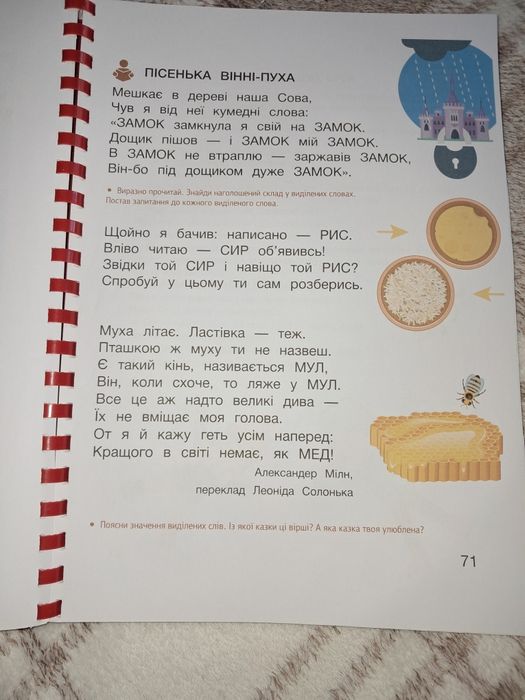 ПІСЕНЬКА ВІННІ-ПУХА
Мешкає в дереві наша Сова,
Чув я від неї кумедні слова:
«ЗАМОК замкнула я свій на ЗАМОК.
Дощик пішов — і ЗАМОК мій ЗАМОК.
В ЗАМОК не втраплю — заржавів ЗАМОК,
Він-бо під дощиком дуже ЗАМОК».
• Виразно прочитай. Знайди наголошений склад у виділених словах.
Постав запитання до кожного виділеного слова.
Щойно я бачив: написано — РИС.
Вліво читаю — СИР об'явивсь!
Звідки той СИР і навіщо той РИС?
Спробуй у цьому ти сам розберись.
Муха літає. Ластівка — теж.
Пташкою ж муху ти не назвеш.
Є такий кінь, називається МУЛ,
Він, коли схоче, то ляже у МУЛ.
Все це аж надто великі дива —
Їх не вміщає моя голова.
От я й кажу геть усім наперед:
Кращого в світі немає, як МЕД!
Александер Мілн,
переклад Леоніда Солонька
• Поясни значення виділених слів. Із якої казки ці вірші? А яка казка твоя улюблена?
71